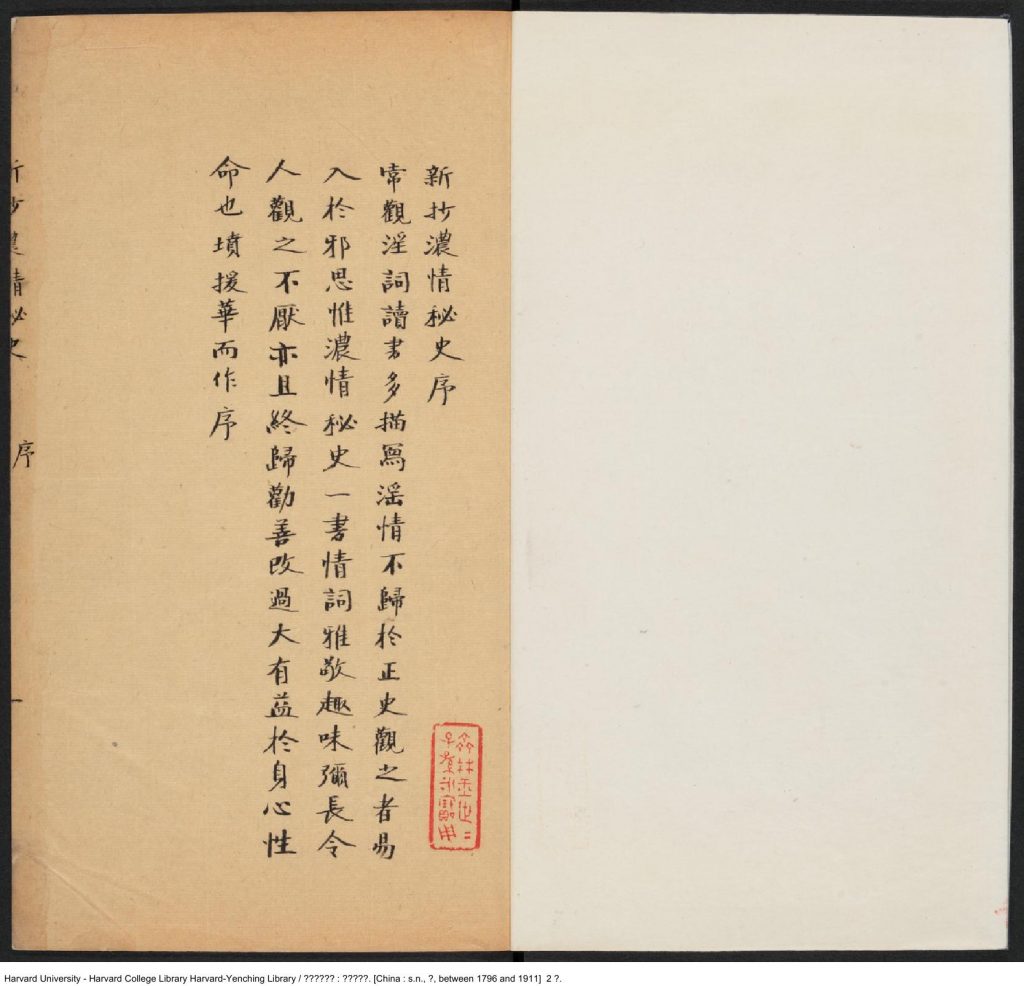 新抄濃情秘史序
常觀淫詞讀書多描寫淫情不歸於正史觀之者易
入於邪思惟濃情秘史一書情詞雅敬趣味彌長令
人觀之不厭亦且終歸勸善改過大有益於身心性
命也墳援華而作序
新抄濃情秘史 序 一
Harvard University - Harvard College Library Harvard-Yenching Library / ?????? : ?????. [China : s.n., ?, between 1796 and 1911] 2 ?.